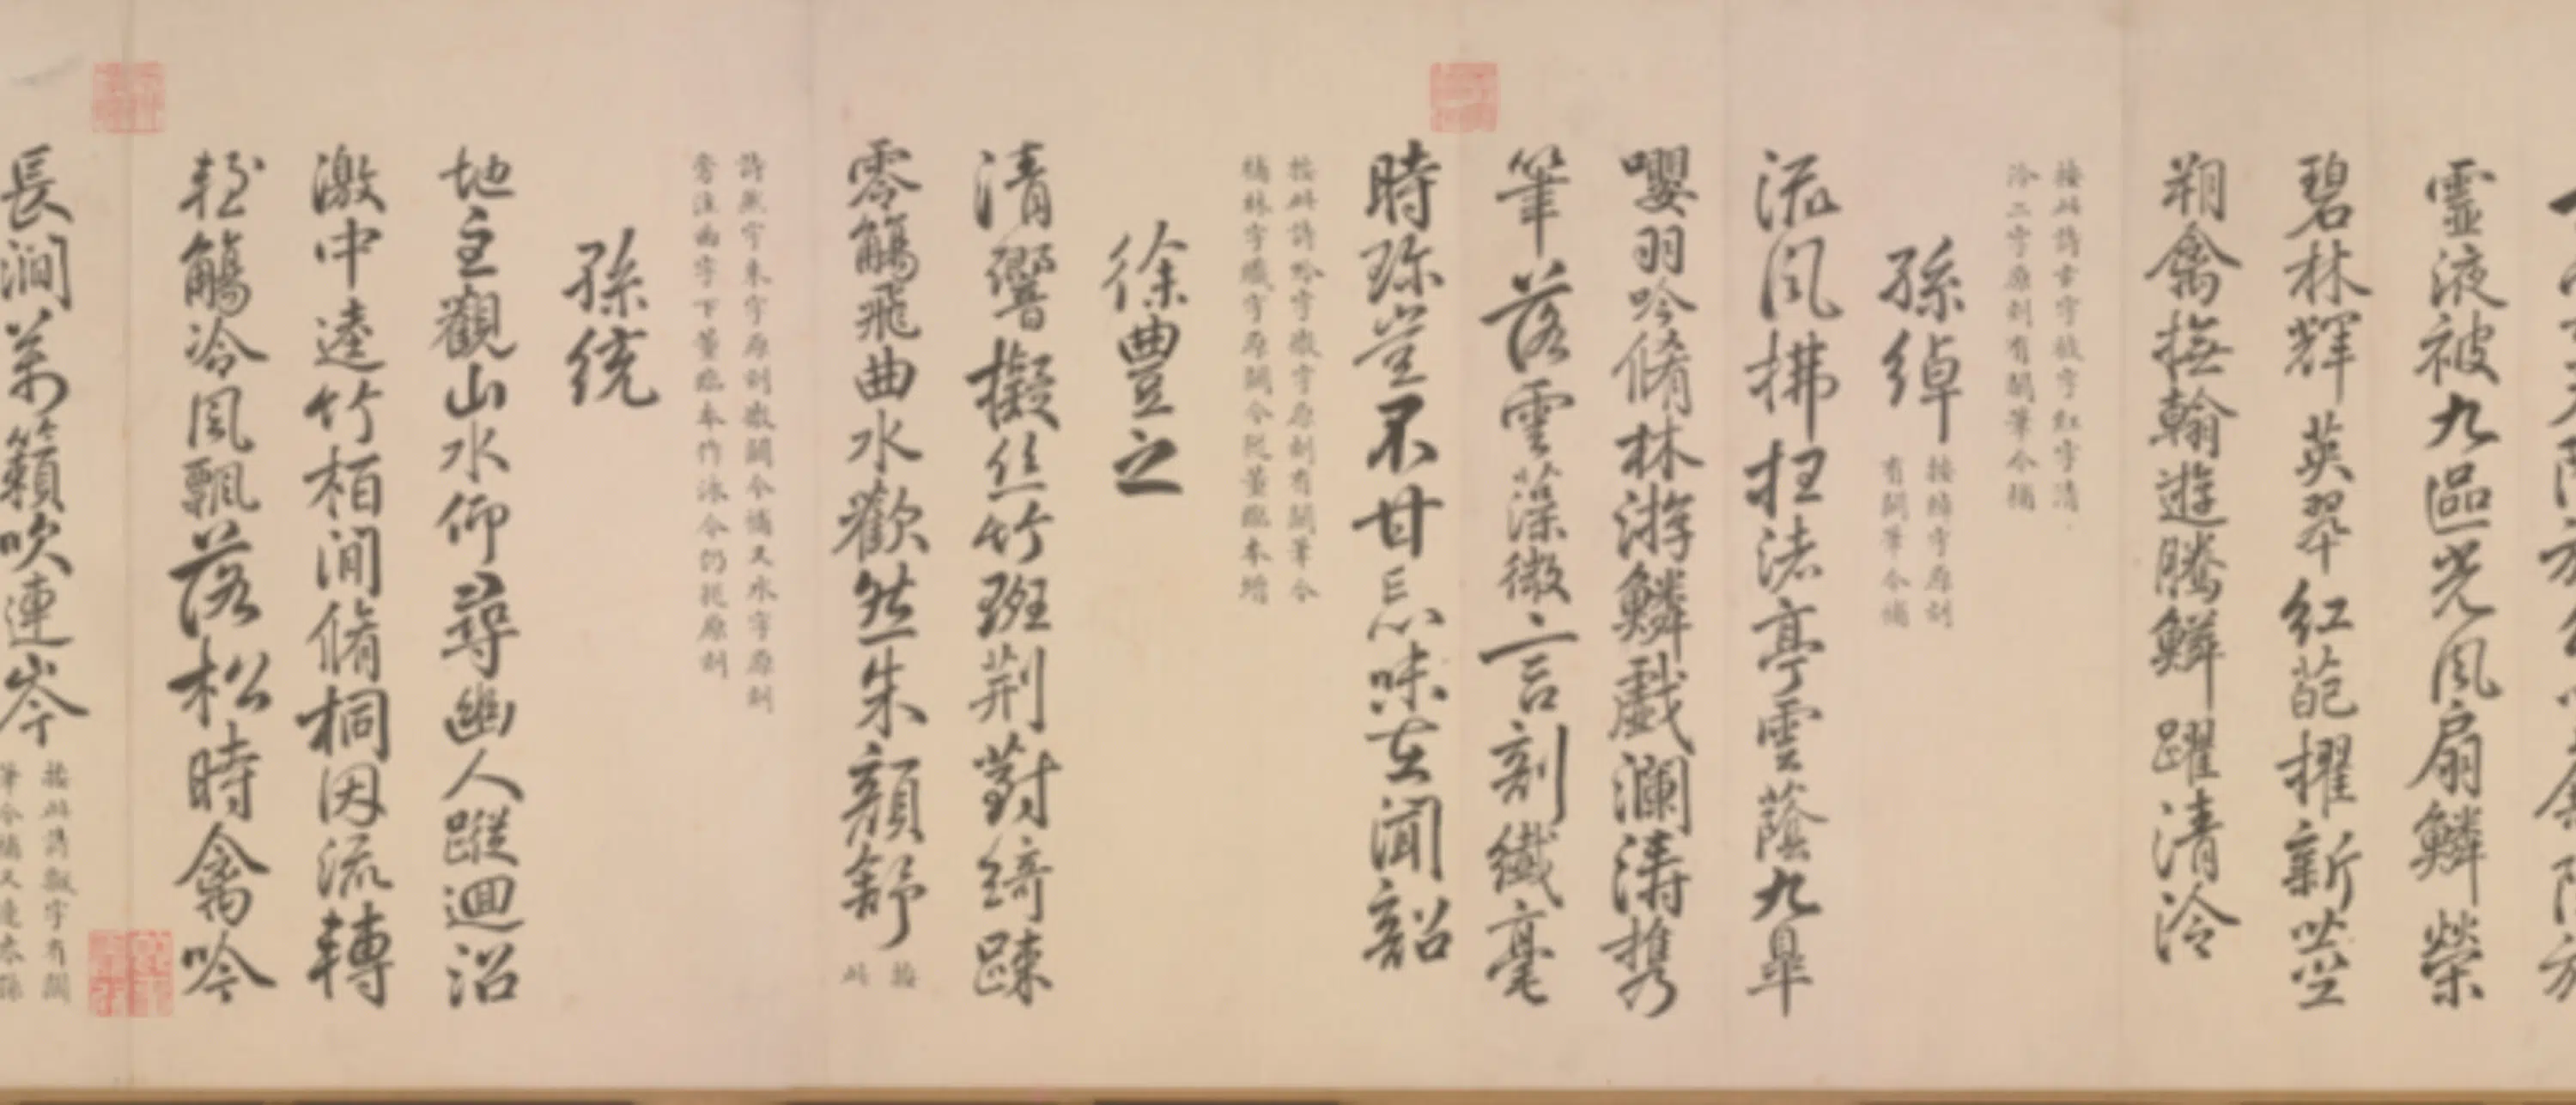 靈液被九區光風扇鱗榮
碧林輝英翠紅葩擢新莖
翔禽撫翰遊騰鱗躍清泠
按此詩幸字被字紅字清
泠二字原刻有闕筆今補
孫綽
按綽字原刻
有闕筆今補
流風拂枉渚亭雲蔭九皐
嚶羽吟脩林游鱗戲瀾濤攜
筆落雲藻微言剖纖毫
時珍豈不甘忘味在聞韶
按此詩吟字微字原刻有闕筆今
補林字纖字原闕今從董臨本增
徐豐之
清響擬絲竹班荆對綺疎
零觴飛曲水歡然朱顏舒
按
此
詩然字朱字原刻微闕今補又水字原刻
旁注幽字下董臨本作泳今仍從原刻
孫統
地主觀山水仰尋幽人蹤迴沼
激中逵竹栢澗脩桐因流轉
輕觴冷風飄落松時禽吟
長澗萬籟吹連岑
按此詩飄字有闕